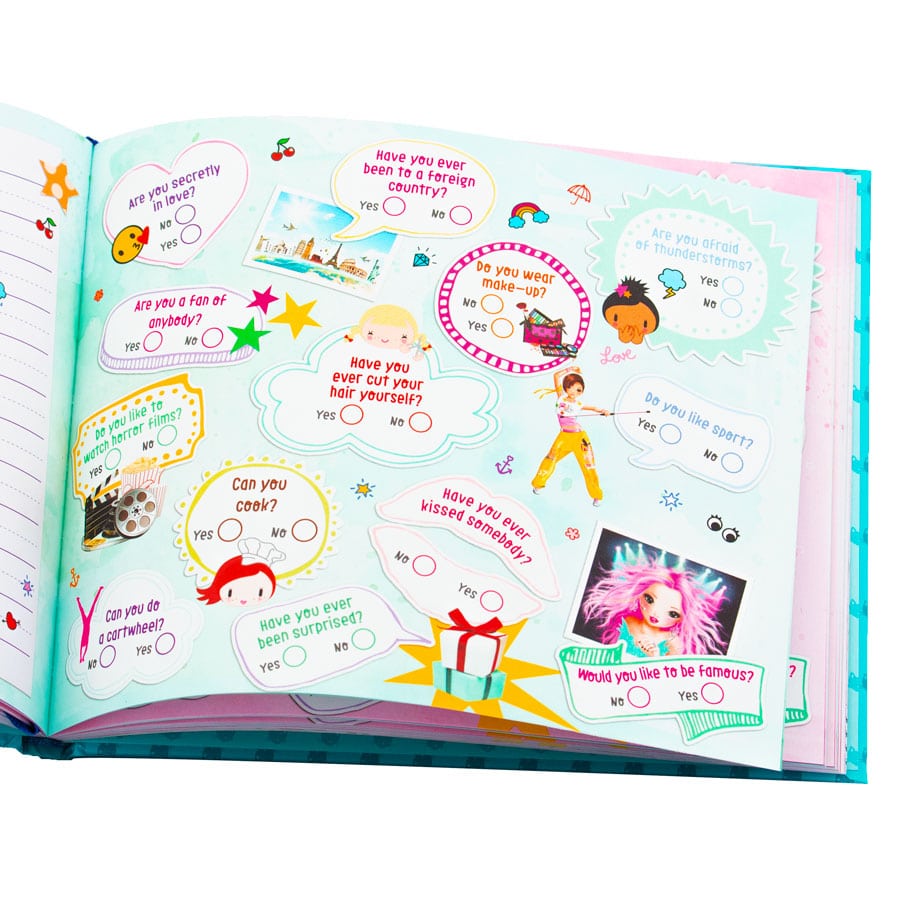 Are you secretly
in love?
No
Yes
Have you ever
been to a foreign
country?
Yes No
Are you afraid
of thunderstorms?
Yes
No
Do you wear
make-up?
No
Yes
Are you a fan of
anybody?
Yes No
Love
Have you
ever cut your
hair yourself?
Yes No
Do you like sport?
Yes
No
Do you like to
watch horror films?
Yes No
Can you
cook?
Yes No
Have you ever
kissed somebody?
No
Yes
Can you do
a cartwheel?
No Yes
Have you ever
been surprised?
Yes No
Would you like to be famous?
No Yes
?